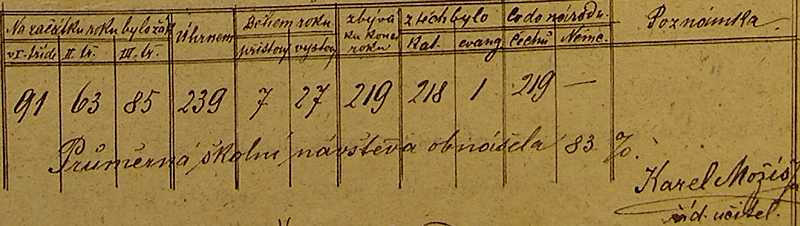 Na začátku roku bylo žáků Úhrnem Během roku zbývá z těch bylo Co do národn. Poznámka
v I. třídě II. tř. III. tř. přistouplo vystoup ku konci roku kat. evang. Čechů Němc.
91 63 85 239 7 27 219 218 1 219 —
Průměrná školní návštěva obnášela 83 %.
Karel Možíš
říd. učitel.